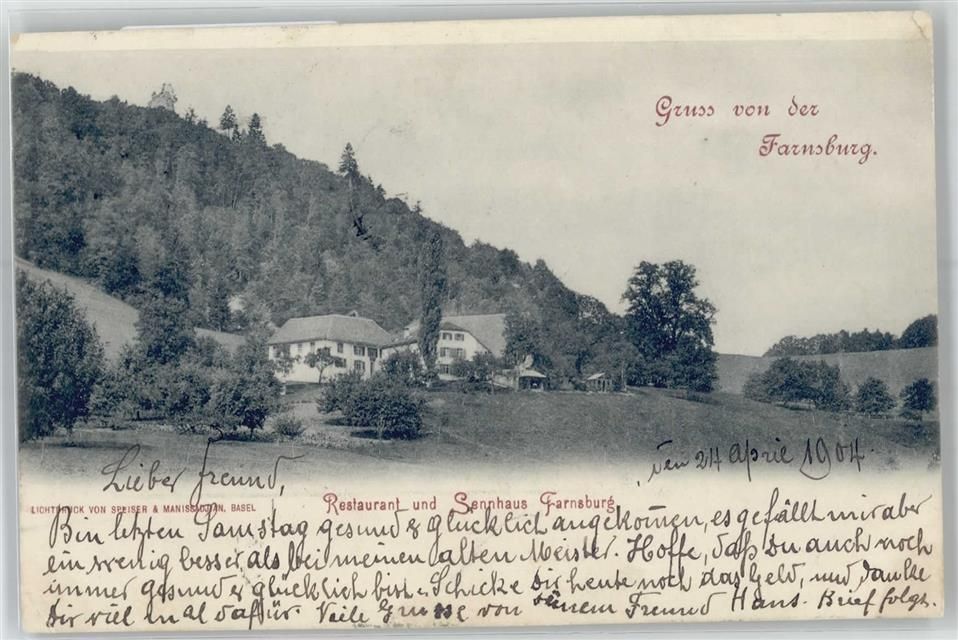 Gruss von der
Farnsburg.
den 24 April 1904.
Lieber Freund,
LICHTDRUCK VON SPEISER & MANISSADJIAN, BASEL
Restaurant und Sennhaus Farnsburg
Bin letzten Samstag gesund & glücklich angekom̄en, es gefällt mir aber
ein wenig besser, als bei meinen alten Meister. Hoffe, daß Du auch noch
immer gesund & glücklich bist. Schicke Dir heute noch das Geld, und danke
Dir viel mal dafür Viele Grüsse von deinem Freund Hans. Brief folgt.